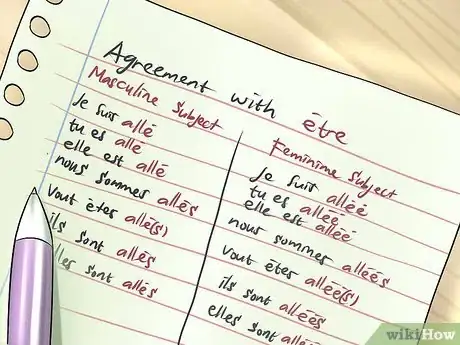 Agreement with être
Masculine Subject
Je suis allé
tu es allé
elle est allé
nous sommes allés
Vout êtes allé(s)
ils sont allés
elles sont allés
Feminime Subject
Je suis alléé
tu es alléé
elle est alléé
nous sommes alléés
Vout êtes alléé(s)
ils sont alléés
elles sont alléés
wikiHow